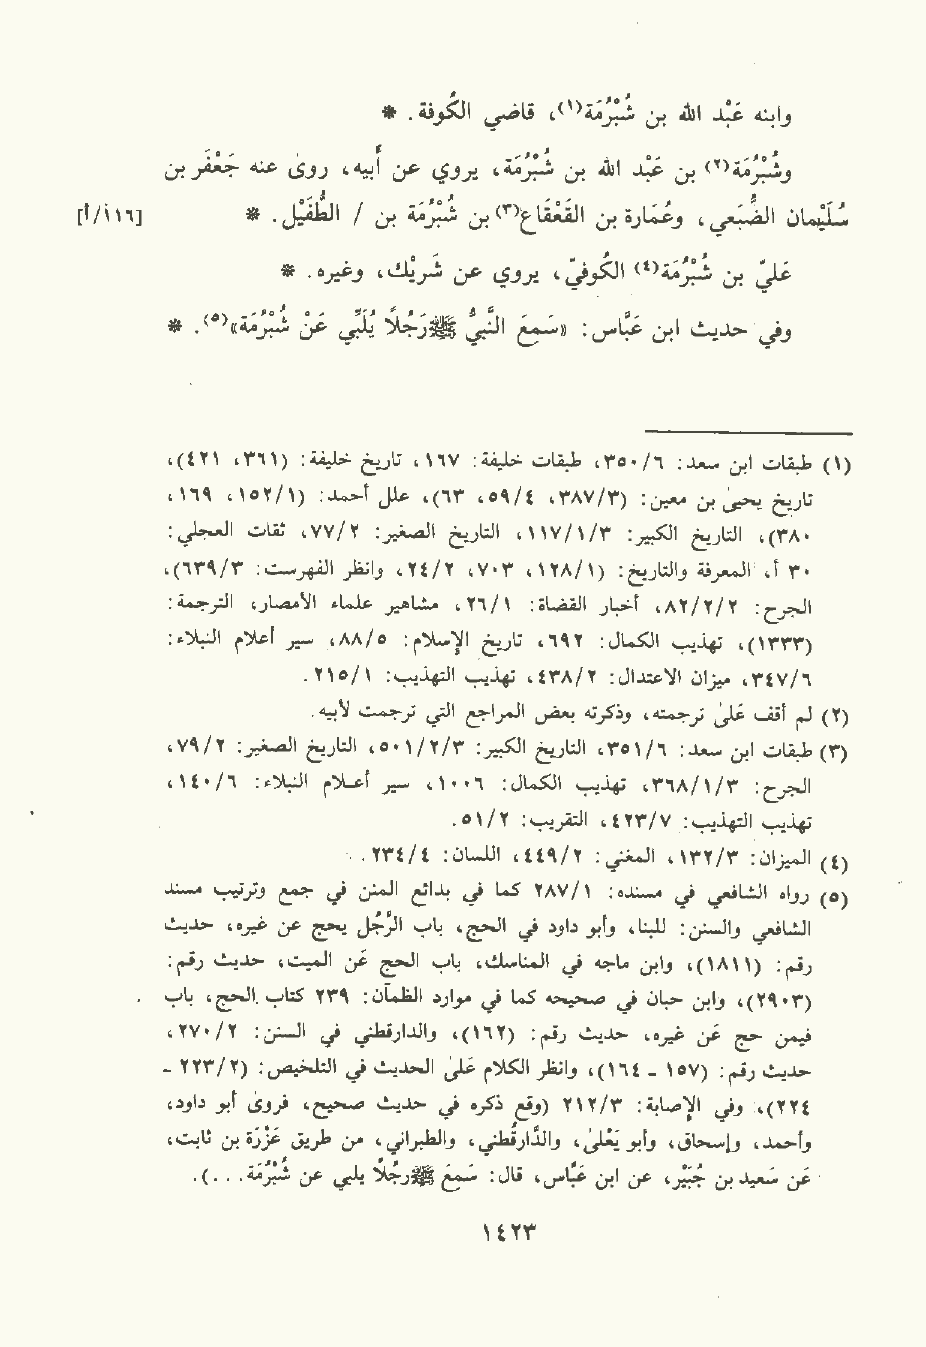 وابنه عَبْد الله بن شُبْرُمَة(١)، قاضي الكُوفة. *
وشُبْرُمَة(٢) بن عَبْد الله بن شُبْرُمَة، يروي عن أَبيه، روىٰ عنه جَعْفَر بن
سُلَيْمان الضُّبَعي، وعُمَارة بن القَعْقَاع(٣) بن شُبْرُمَة بن / الطُّفَيْل. * [١١٦/أ]
عَليّ بن شُبْرُمَة(٤) الكُوفيّ، يروي عن شَريْك، وغيره. *
وفي حديث ابن عَبَّاس: «سَمِعَ النَّبيُّ ﷺ رَجُلاً يُلَبِّي عَنْ شُبْرُمَة»(٥). *
(١) طبقات ابن سعد: ٦/٣٥٠، طبقات خليفة: ١٦٧، تاريخ خليفة: (٣٦١، ٤٢١)،
تاريخ يحيىٰ بن معين: (٣/٣٨٧، ٤/٥٩، ٦٣)، علل أحمد: (١/١٥٢، ١٦٩،
٣٨٠)، التاريخ الكبير: ٣/١/١١٧، التاريخ الصغير: ٢/٧٧، ثقات العجلي:
٣٠ أ، المعرفة والتاريخ: (١/١٢٨، ٧٠٣، ٢/٢٤، وانظر الفهرست: ٣/٦٣٩)،
الجرح: ٢/٢/٨٢، أخبار القضاة: ١/٢٦، مشاهير علماء الأمصار، الترجمة:
(١٣٣٣)، تهذيب الكمال: ٦٩٢، تاريخ الإسلام: ٥/٨٨، سير أعلام النبلاء:
٦/٣٤٧، ميزان الاعتدال: ٢/٤٣٨، تهذيب التهذيب: ١/٢١٥.
(٢) لم أقف علىٰ ترجمته، وذكرته بعض المراجع التي ترجمت لأبيه.
(٣) طبقات ابن سعد: ٦/٣٥١، التاريخ الكبير: ٣/٢/٥٠١، التاريخ الصغير: ٢/٧٩،
الجرح: ٣/١/٣٦٨، تهذيب الكمال: ١٠٠٦، سير أعلام النبلاء: ٦/١٤٠،
تهذيب التهذيب: ٧/٤٢٣، التقريب: ٢/٥١.
(٤) الميزان: ٣/١٣٢، المغني: ٢/٤٤٩، اللسان: ٤/٢٣٤.
(٥) رواه الشافعي في مسنده: ١/٢٨٧ كما في بدائع المنن في جمع وترتيب مسند
الشافعي والسنن: للبنا، وأبو داود في الحج، باب الرَّجُل يحج عن غيره، حديث
رقم: (١٨١١)، وابن ماجه في المناسك، باب الحج عَن الميت، حديث رقم:
(٢٩٠٣)، وابن حبان في صحيحه كما في موارد الظمآن: ٢٣٩ كتاب الحج، باب
فيمن حج عَن غيره، حديث رقم: (١٦٢)، والدارقطني في السنن: ٢/٢٧٠،
حديث رقم: (١٥٧ ـ ١٦٤)، وانظر الكلام علىٰ الحديث في التلخيص: (٢/٢٢٣ ـ
٢٢٤)، وفي الإصابة: ٣/٢١٢ (وقع ذكره في حديث صحيح، فروىٰ أبو داود،
وأحمد، وإسحاق، وأبو يَعْلىٰ، والدَّارقُطني، والطبراني، من طريق عَزْرَة بن ثابت،
عَن سَعيد بن جُبَيْر، عن ابن عَبَّاس، قال: سَمعَ ﷺ رَجُلاً يلبي عن شُبْرُمَة...).
١٤٢٣